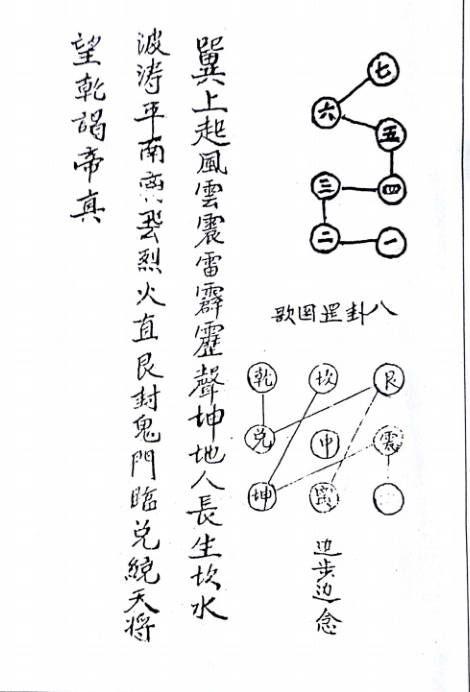 七
六
五
三 四
二 一
八卦罡图歌
乾 坎 艮
兑 中 震
坤 离
边步边念
巽上起風雲震雷霹靂聲坤地人長生坎水
波涛平南离飛烈火直艮封鬼門臨兑統天将
望乾謁帝真